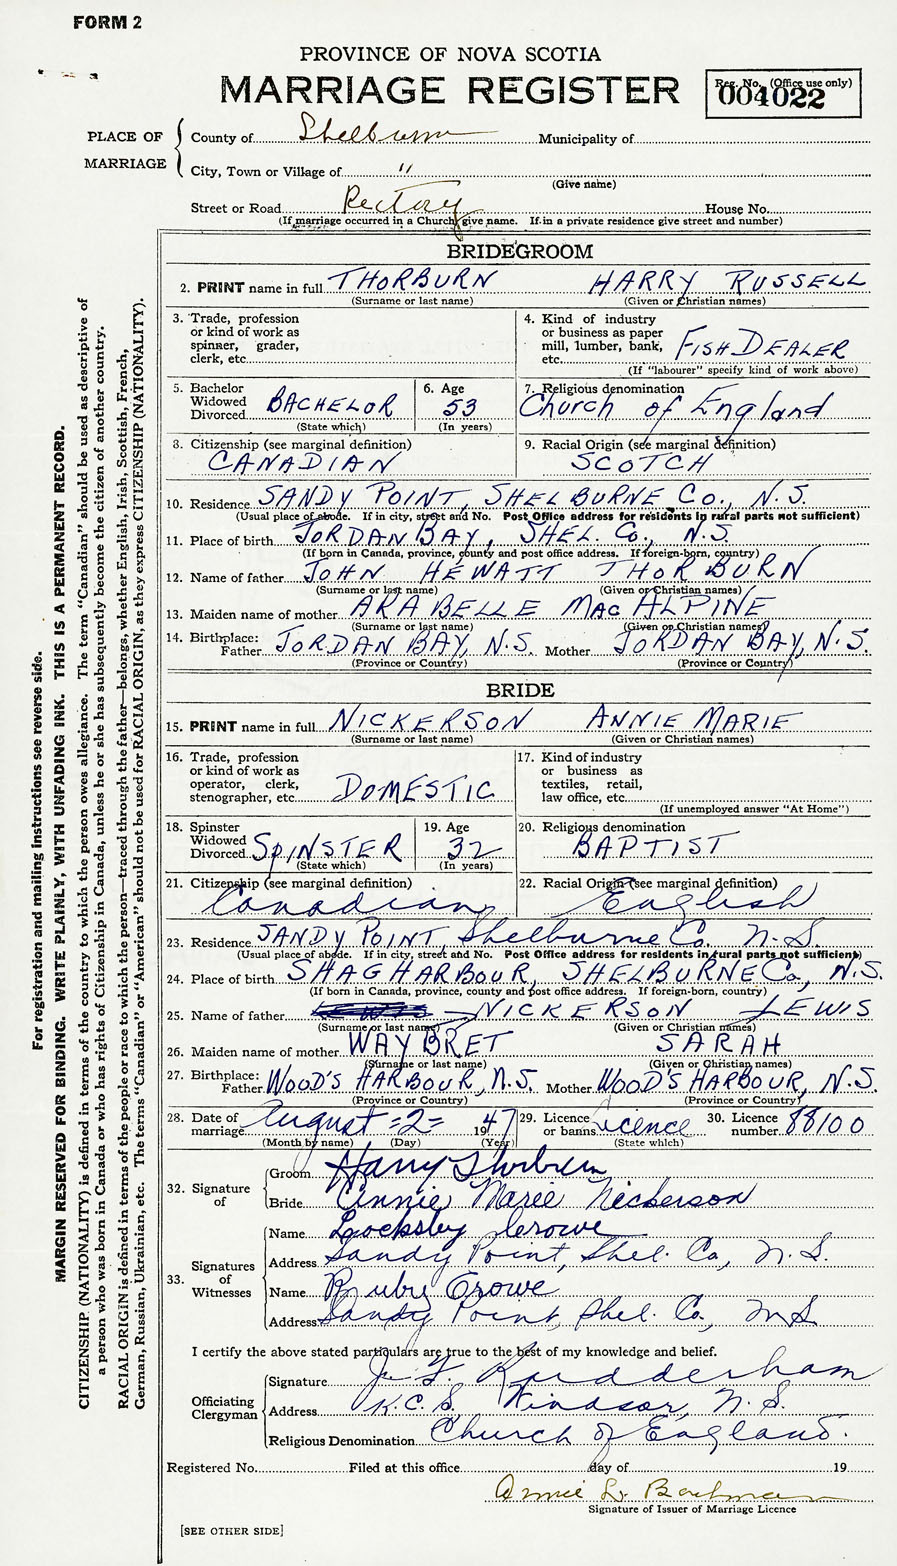 FORM 2
PROVINCE OF NOVA SCOTIA
MARRIAGE REGISTER
Reg. No. (Office use only)
004022
PLACE OF MARRIAGE
County of Shelburne Municipality of
City, Town or Village of "
(Give name)
Street or Road Rectory House No.
(If marriage occurred in a Church give name. If in a private residence give street and number)
BRIDEGROOM
2. PRINT name in full THORBURN HARRY RUSSELL
(Surname or last name) (Given or Christian names)
3. Trade, profession or kind of work as spinner, grader, clerk, etc.
4. Kind of industry or business as paper mill, lumber, bank, etc. FISH DEALER
(If "labourer" specify kind of work above)
5. Bachelor Widowed Divorced BACHELOR (State which)
6. Age 53 (In years)
7. Religious denomination Church of England
8. Citizenship (see marginal definition) CANADIAN
9. Racial Origin (see marginal definition) SCOTCH
10. Residence SANDY POINT, SHELBURNE Co., N.S.
(Usual place of abode. If in city, street and No. Post Office address for residents in rural parts not sufficient)
11. Place of birth JORDAN BAY, SHEL. Co., N.S.
(If born in Canada, province, county and post office address. If foreign-born, country)
12. Name of father JOHN HEWATT THORBURN
(Surname or last name) (Given or Christian names)
13. Maiden name of mother ARABELLE MACALPINE
(Surname or last name) (Given or Christian names)
14. Birthplace: Father JORDAN BAY, N.S. Mother JORDAN BAY, N.S.
(Province or Country) (Province or Country)
BRIDE
15. PRINT name in full NICKERSON ANNIE MARIE
(Surname or last name) (Given or Christian names)
16. Trade, profession or kind of work as operator, clerk, stenographer, etc. DOMESTIC
17. Kind of industry or business as textiles, retail, law office, etc.
(If unemployed answer "At Home")
18. Spinster Widowed Divorced SPINSTER (State which)
19. Age 32 (In years)
20. Religious denomination BAPTIST
21. Citizenship (see marginal definition) Canadian
22. Racial Origin (see marginal definition) English
23. Residence SANDY POINT, Shelburne Co. N.S.
(Usual place of abode. If in city, street and No. Post Office address for residents in rural parts not sufficient)
24. Place of birth SHAG HARBOUR, SHELBURNE Co, N.S.
(If born in Canada, province, county and post office address. If foreign-born, country)
25. Name of father NICKERSON LEWIS
(Surname or last name) (Given or Christian names)
26. Maiden name of mother WAYBRET SARAH
(Surname or last name) (Given or Christian names)
27. Birthplace: Father WOOD'S HARBOUR, N.S. Mother WOOD'S HARBOUR, N.S.
(Province or Country) (Province or Country)
28. Date of marriage August =2= 1947
(Month by name) (Day) (Year)
29. Licence or banns Licence (State which)
30. Licence number 88100
32. Signature of
Groom Harry Thorburn
Bride Annie Marie Nickerson
33. Signatures of Witnesses
Name Locksley Crowe
Address Sandy Point, Shel. Co, N.S.
Name Ruby Crowe
Address Sandy Point, Shel. Co., N.S
I certify the above stated particulars are true to the best of my knowledge and belief.
Officiating Clergyman
Signature
Address K.C.S. Windsor, N.S.
Religious Denomination Church of England.
Registered No. Filed at this office day of 19
Annie L.
Signature of Issuer of Marriage Licence
[SEE OTHER SIDE]
For registration and mailing instructions see reverse side.
MARGIN RESERVED FOR BINDING. WRITE PLAINLY, WITH UNFADING INK. THIS IS A PERMANENT RECORD.
CITIZENSHIP (NATIONALITY) is defined in terms of the country to which the person owes allegiance. The term "Canadian" should be used as descriptive of
a person who was born in Canada or who has rights of Citizenship in Canada, unless he or she has subsequently become the citizen of another country.
RACIAL ORIGIN is defined in terms of the people or race to which the person—traced through the father—belongs, whether English, Irish, Scottish, French,
German, Russian, Ukrainian, etc. The terms "Canadian" or "American" should not be used for RACIAL ORIGIN, as they express CITIZENSHIP (NATIONALITY).